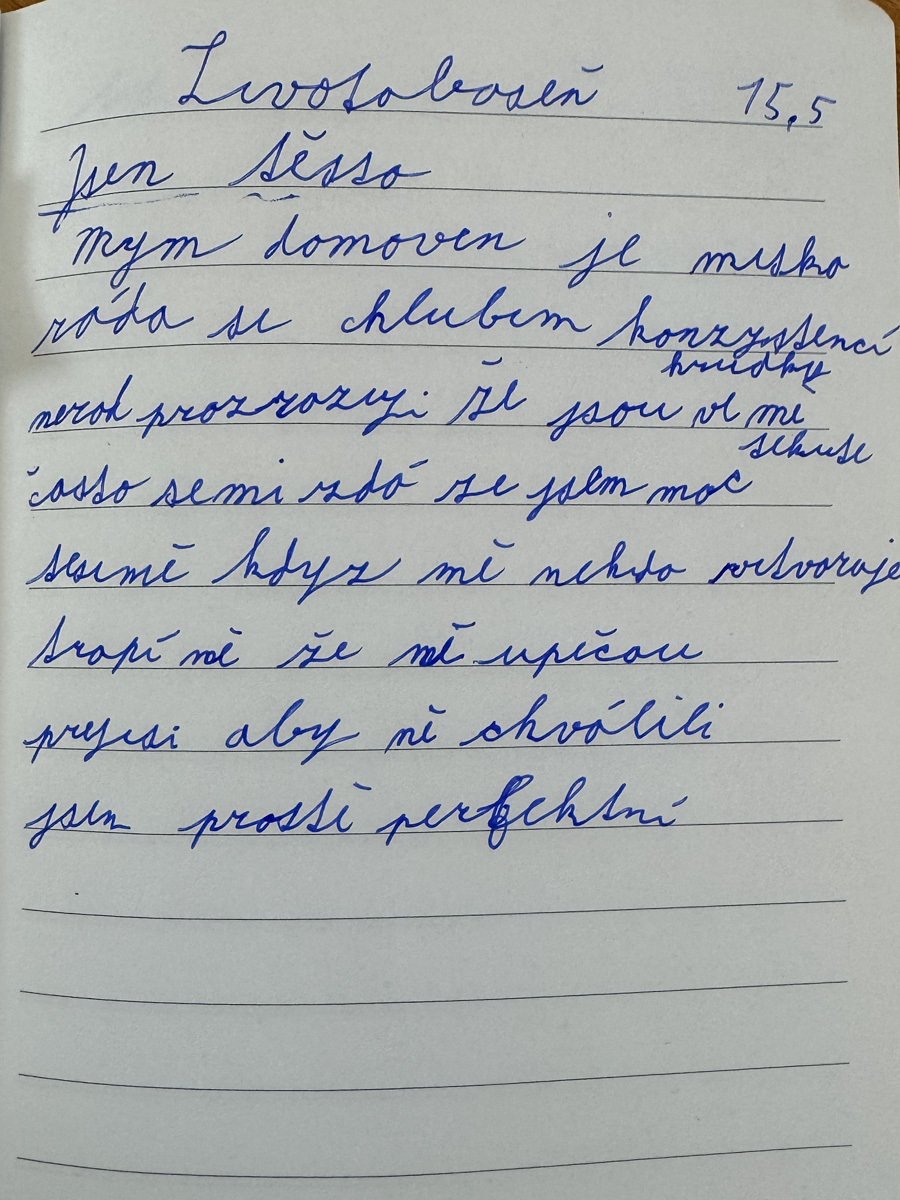 Životabáseň 15.5
Jsen těsto
Mým domoven je miska
ráda se chlubim konzystencí
nerad prozrazuji že jsou ve mě hrudky
často semi zdá ze jsem moc tekuté
sesemě kdyz mě nehdo vitvoraje
trapí mě že mě upečou
přejisi aby mě chválili
jsen prostě perfektní